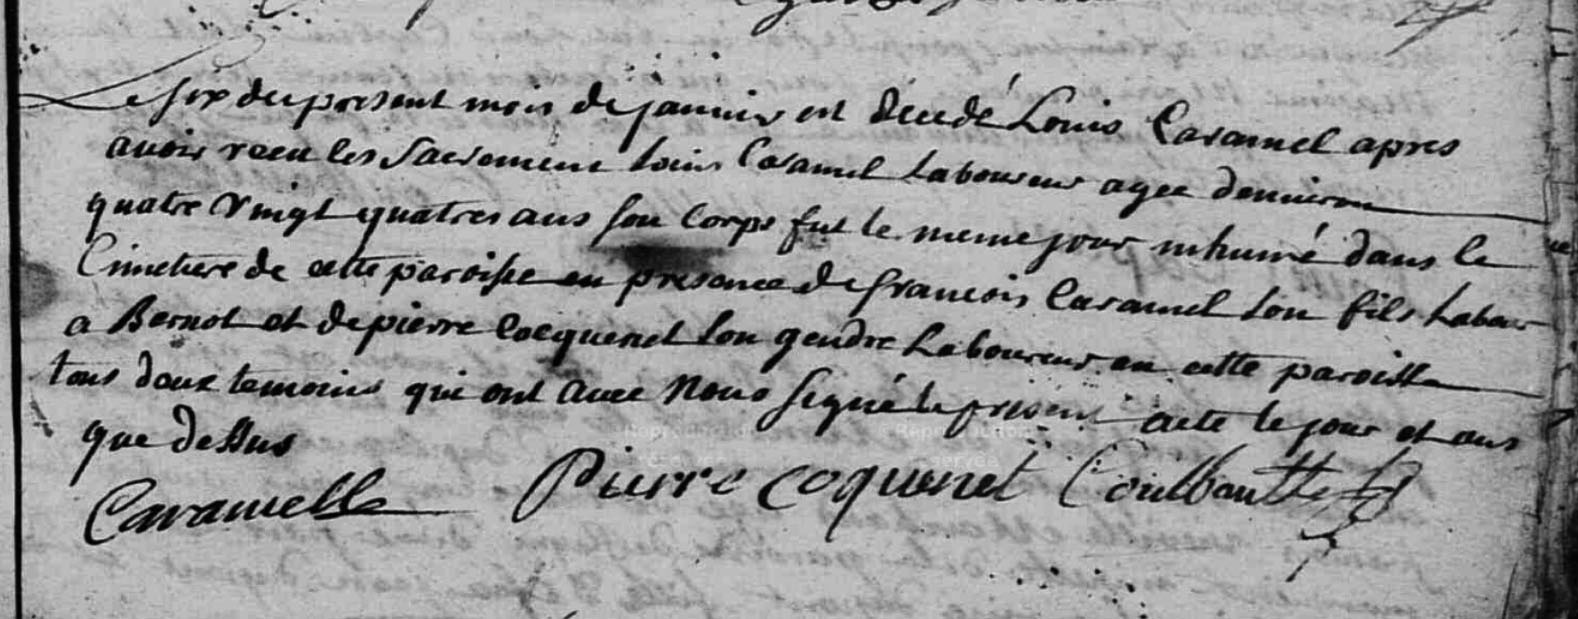 Le six du present mois de janvier est decedé Louis Caramel apres
avoir receu les Sacrement Louis Caramel Laboureur agee denviron
quatre vingt quatres ans son Corps fut le meme jour inhumé dans le
Cimetiere de cette paroisse en presence de francois Caramel son fils Labour
a Bernot et de pierre Cocquenet son gendre Laboureur en cette paroisse
tous deux temoins qui ont avec Nous signé le present acte le jour et ans
que dessus
Caramelle Pierre coquenet